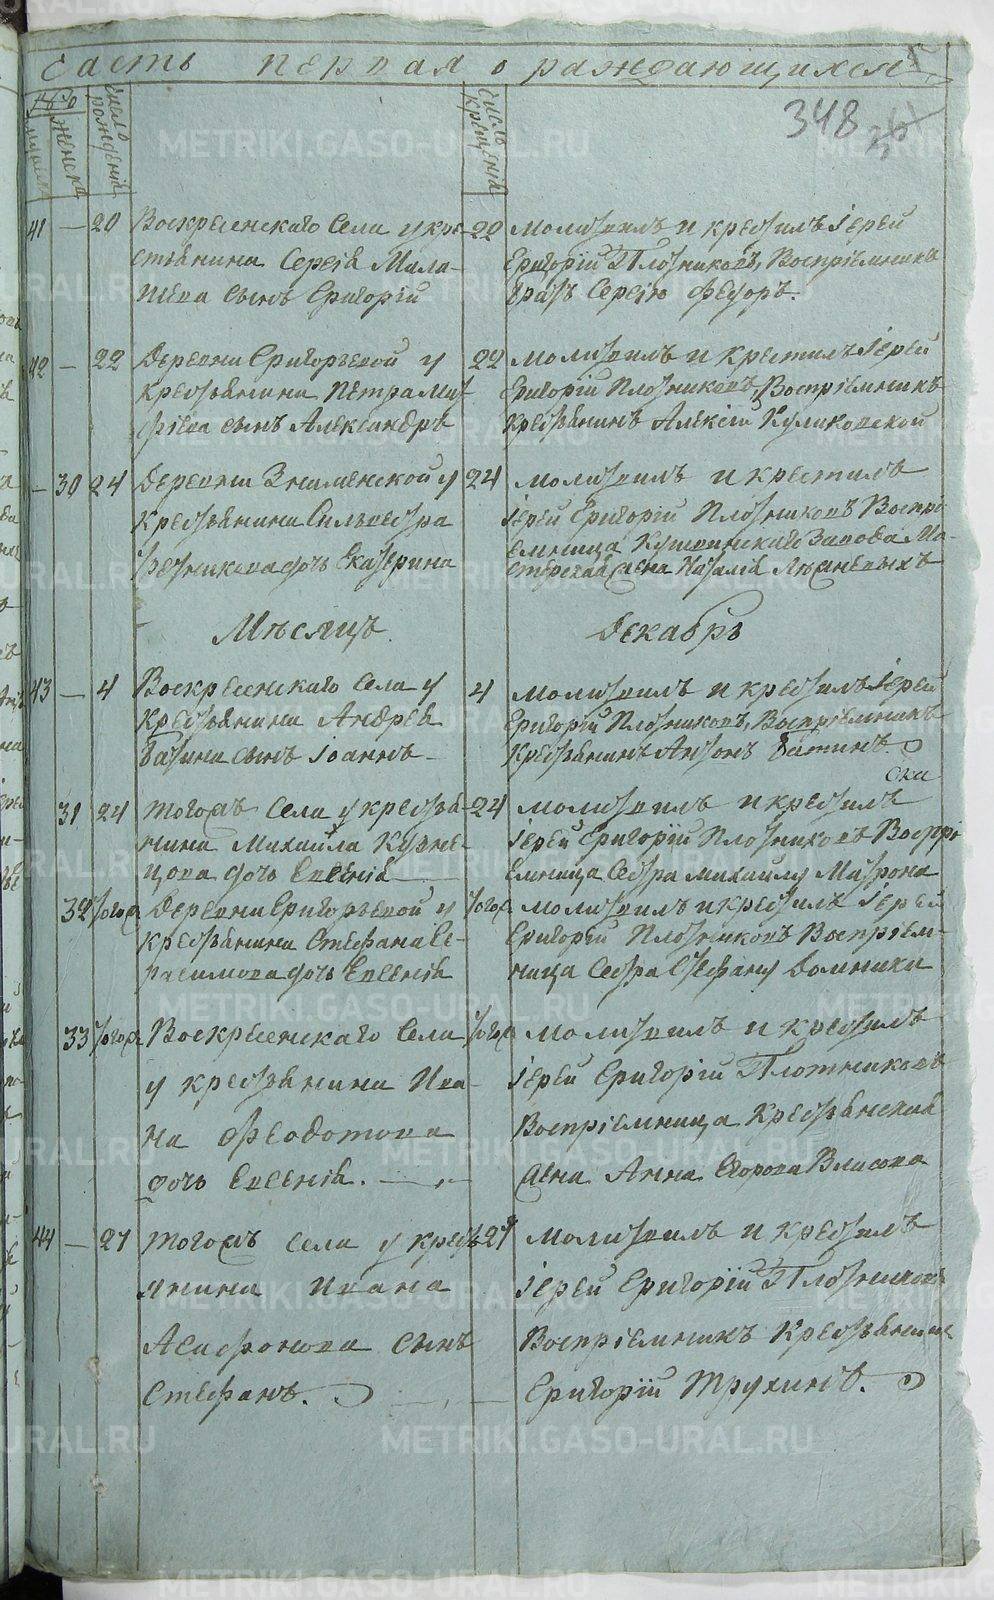 часть первая о раждающихся
348
мужска
женска
число рожденія
число крещенія
41 — 20 Воскресенскаго Села у кре-
стьянина Сергѣя Мала-
сынъ Григорій
22 молитвилъ и крестилъ Іерей
Григорій Плотниковъ, Воспріемникъ
братъ Сергію Федоръ.
42 — 22 Деревни Григорьевой у
крестьянина Петра Мит
фіева сынъ Александръ
22 молитвилъ и крестилъ Іерей
Григорій Плотниковъ, Воспріемникъ
крестьянинъ Алексій Куликовской
— 30 24 Деревни Знаменской у
крестьянина Сильвестра
дочь Екатерина
24 молитвилъ и крестилъ
іерей Григорій Плотниковъ Воспрі
емница Кушвинскаго Завода Ма-
стерская жена Наталія
Мѣсяцъ Декабрь
43 — 4 Воскресенскаго Села у
крестьянина Андрея
Батина сынъ Іоаннъ
4 молитвилъ и крестилъ Іерей
Григорій Плотниковъ, Воспріемникъ
крестьянинъ Антонъ Батинъ.
31 24 тогожъ Села у крестья-
нина Михайла Кузне-
цова дочь Евгенія
24 молитвилъ и крестилъ
іерей Григорій Плотниковъ Воспрі
емница Сестра Михаилу Матрона
32 тогож Деревни Григорьевой у
крестьянина Стефана Ге-
расимова дочь Евгенія
тогож молитвилъ и крестилъ Іерей
Григорій Плотниковъ Воспріем-
ница Сестра Стефану Домника
33 тогож Воскресенскаго Села
у крестьянина Ива-
на Феодотова
дочь Евгенія.
тогож молитвилъ и крестилъ
іерей Григорій Плотниковъ
Воспріемница Крестьянская
жена Анна Егорова Власова
44 — 27 тогожъ села у кресть
янина Ивана
Агафонова сынъ
Стефанъ.
27 молитвилъ и крестилъ
іерей Григорій Плотниковъ
Воспріемникъ Крестьянинъ
Григорій Трухинъ.
METRIKI.GASO-URAL.RU